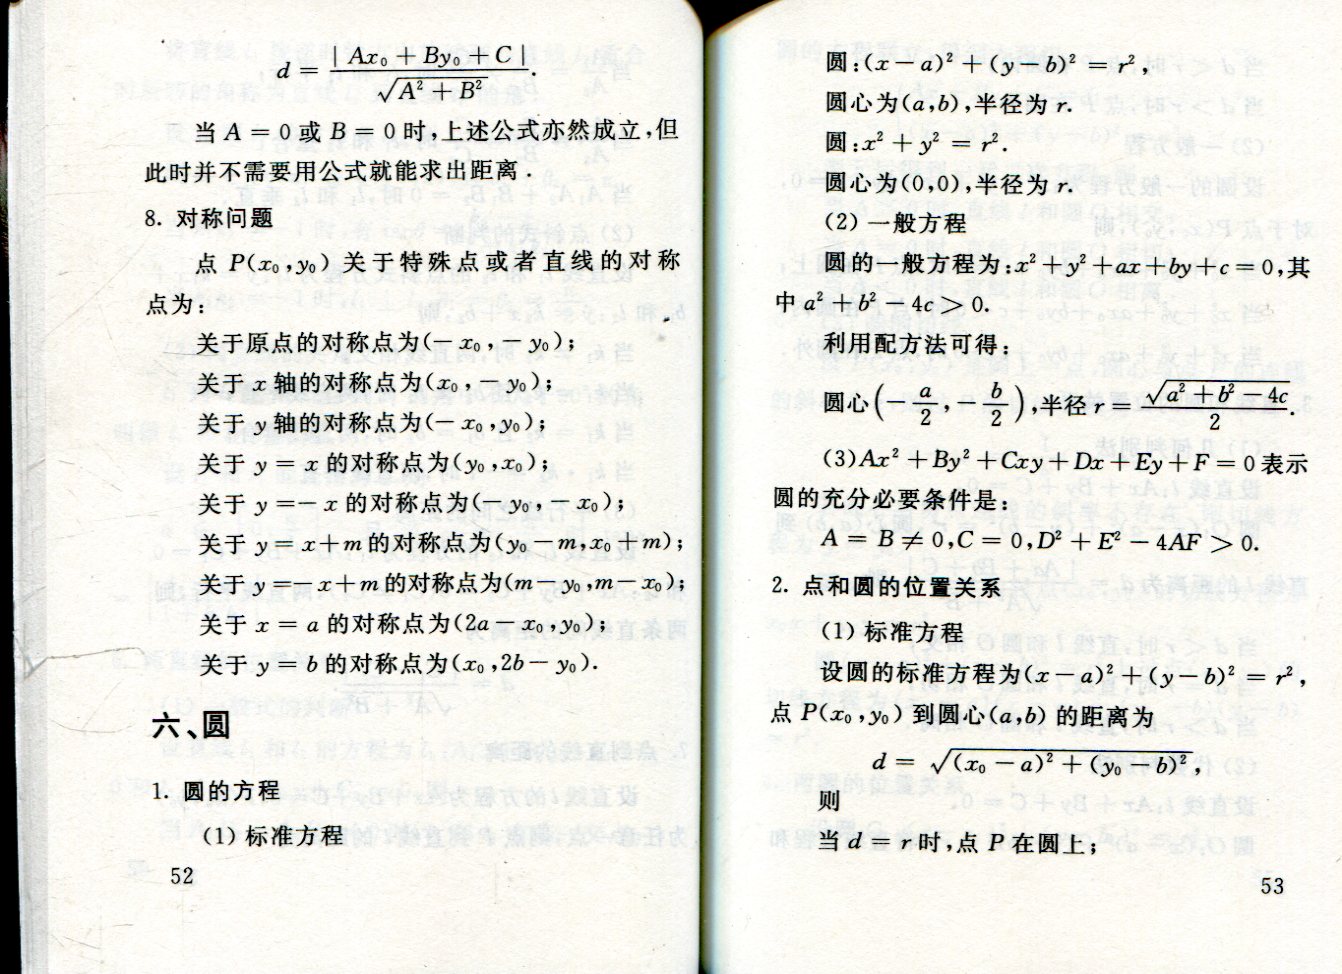 d = | Ax₀ + By₀ + C | / √(A² + B²).
当 A = 0 或 B = 0 时,上述公式亦然成立,但
此时并不需要用公式就能求出距离.
8. 对称问题
点 P(x₀,y₀) 关于特殊点或者直线的对称
点为:
关于原点的对称点为(- x₀,- y₀);
关于 x 轴的对称点为(x₀,- y₀);
关于 y 轴的对称点为(- x₀,y₀);
关于 y = x 的对称点为(y₀,x₀);
关于 y =- x 的对称点为(- y₀,- x₀);
关于 y = x+m 的对称点为(y₀-m,x₀+m);
关于 y =- x+m 的对称点为(m- y₀,m- x₀);
关于 x = a 的对称点为(2a- x₀,y₀);
关于 y = b 的对称点为(x₀,2b- y₀).
六、圆
1. 圆的方程
(1) 标准方程
52
圆:(x - a)² + (y - b)² = r²,
圆心为(a,b),半径为 r.
圆:x² + y² = r².
圆心为(0,0),半径为 r.
(2) 一般方程
圆的一般方程为:x² + y² + ax + by + c = 0,其
中 a² + b² - 4c > 0.
利用配方法可得:
圆心(- a/2, - b/2),半径 r = √(a² + b² - 4c) / 2.
(3)Ax² + By² + Cxy + Dx + Ey + F = 0 表示
圆的充分必要条件是:
A = B ≠ 0,C = 0,D² + E² - 4AF > 0.
2. 点和圆的位置关系
(1) 标准方程
设圆的标准方程为(x - a)² + (y - b)² = r²,
点 P(x₀,y₀) 到圆心(a,b) 的距离为
d = √((x₀ - a)² + (y₀ - b)²),
则
当 d = r 时,点 P 在圆上;
53